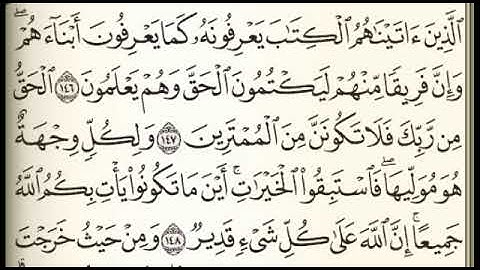 ٱلَّذِينَ ءَاتَيْنَٰهُمُ ٱلْكِتَٰبَ يَعْرِفُونَهُۥ كَمَا يَعْرِفُونَ أَبْنَآءَهُمْ ۖ
وَإِنَّ فَرِيقًا مِّنْهُمْ لَيَكْتُمُونَ ٱلْحَقَّ وَهُمْ يَعْلَمُونَ ١٤٦ ٱلْحَقُّ
مِن رَّبِّكَ فَلَا تَكُونَنَّ مِنَ ٱلْمُمْتَرِينَ ١٤٧ وَلِكُلٍّ وِجْهَةٌ
هُوَ مُوَلِّيهَا ۖ فَٱسْتَبِقُوا۟ ٱلْخَيْرَٰتِ ۚ أَيْنَ مَا تَكُونُوا۟ يَأْتِ بِكُمُ ٱللَّهُ
جَمِيعًا ۚ إِنَّ ٱللَّهَ عَلَىٰ كُلِّ شَىْءٍ قَدِيرٌ ١٤٨ وَمِنْ حَيْثُ خَرَجْتَ